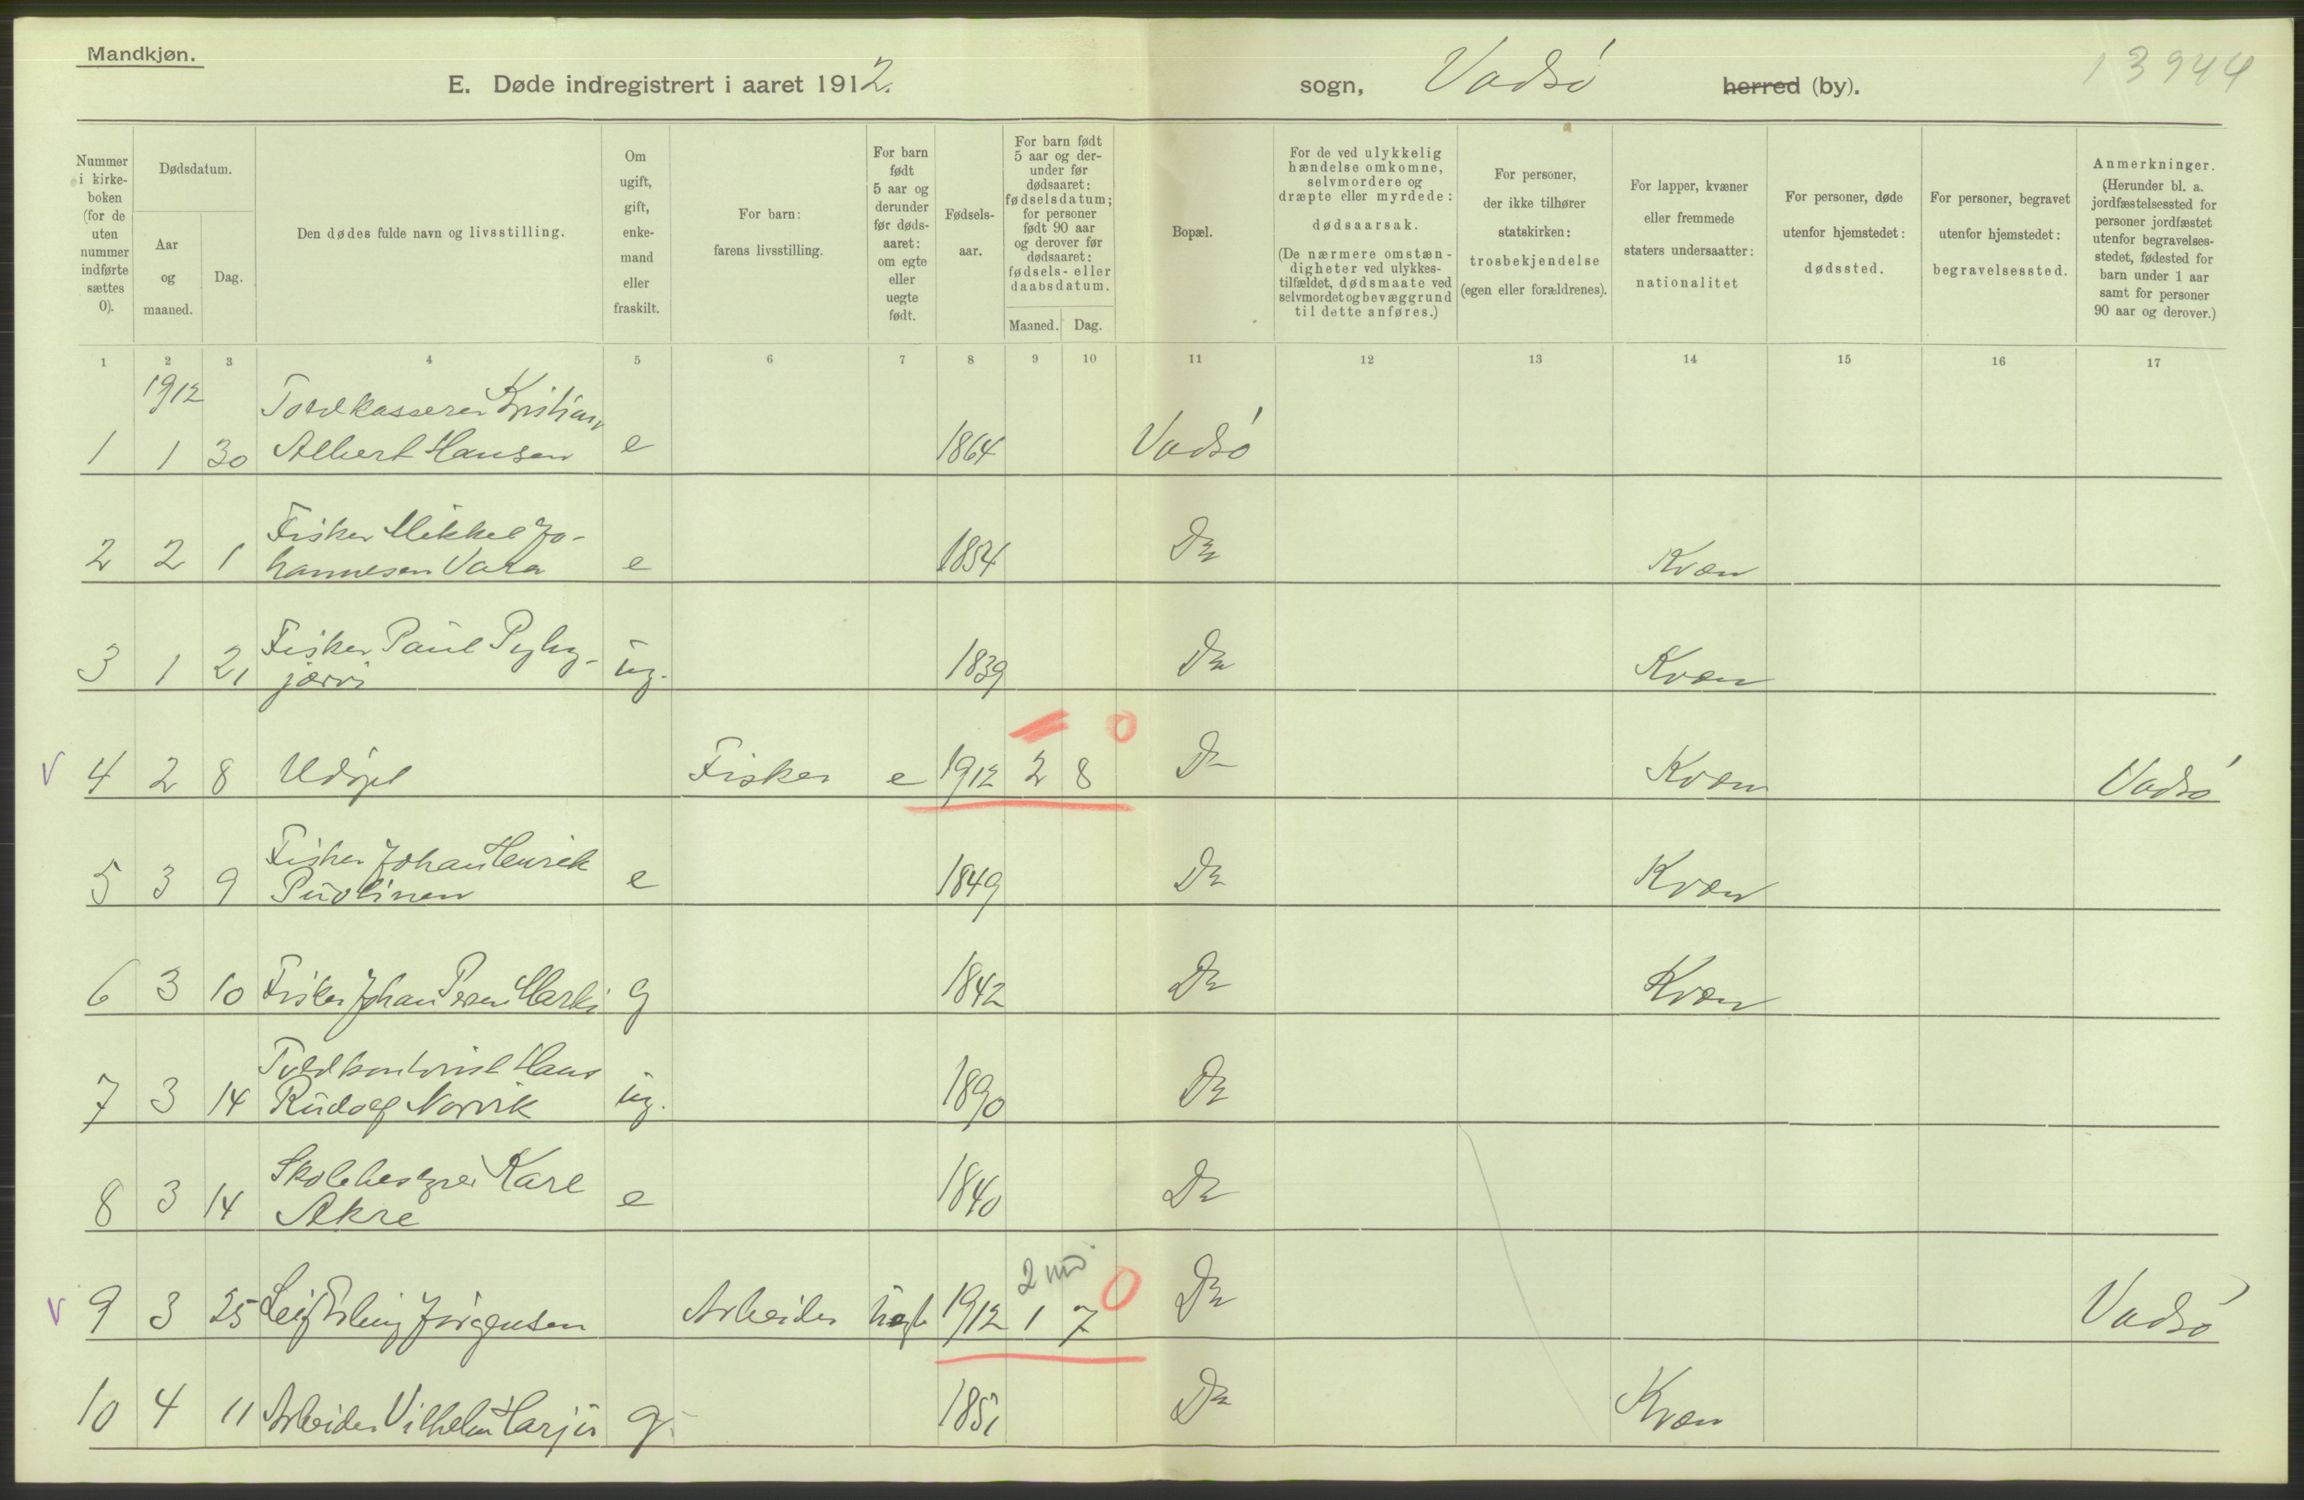 Mandkjøn.
13944
E. Døde indregistrert i aaret 1912. sogn, Vadsø herred (by).
Nummer i kirkeboken (for de uten nummer indførte sættes 0).
Dødsdatum.
Aar og maaned.
Dag.
Den dødes fulde navn og livsstilling.
Om ugift, gift, enkemand eller fraskilt.
For barn: farens livsstilling.
For barn født 5 aar og derunder før dødsaaret: om egte eller uegte født.
Fødselsaar.
For barn født 5 aar og derunder før dødsaaret: fødselsdatum; for personer født 90 aar og derover før dødsaaret: fødsels- eller daabsdatum.
Maaned. Dag.
Bopæl.
For de ved ulykkelig hændelse omkomne, selvmordere og dræpte eller myrdede: dødsaarsak.
(De nærmere omstændigheter ved ulykkestilfældet, dødsmaate ved selvmordet og bevæggrund til dette anføres.)
For personer, der ikke tilhører statskirken: trosbekjendelse (egen eller forældrenes).
For lapper, kvæner eller fremmede staters undersaatter: nationalitet
For personer, døde utenfor hjemstedet: dødssted.
For personer, begravet utenfor hjemstedet: begravelsessted.
Anmerkninger.
(Herunder bl. a. jordfæstelsessted for personer jordfæstet utenfor begravelsesstedet, fødested for barn under 1 aar samt for personer 90 aar og derover.)
1 2 3 4 5 6 7 8 9 10 11 12 13 14 15 16 17
1912 Toldkasserer Kristian
1 1 30 Albert Hansen e 1864 Vadsø
Fisker Mikkel Jo-
2 2 1 hannesen Vara e 1854 Do Kvæn
Fisker Paul Pyhy-
3 1 21 jærvi ug. 1839 Do Kvæn
0
V 4 2 8 Udøpt Fisker e 1912 2 8 Do Kvæn Vadsø
Fisker Johan Henrik
5 3 9 Puolinen e 1849 Do Kvæn
6 3 10 Fisker Johan Persen g 1842 Do Kvæn
Toldkontorist Hans
7 3 14 Rudolf Norvik ug. 1890 Do
Skolebestyrer Karl
8 3 14 Akre e 1840 Do
2 md. 0
V 9 3 25 Leif Erling Jørgensen Arbeider uegte 1912 1 7 Do Vadsø
10 4 11 Arbeider Vilhelm Harju g. 1851 Do Kvæn